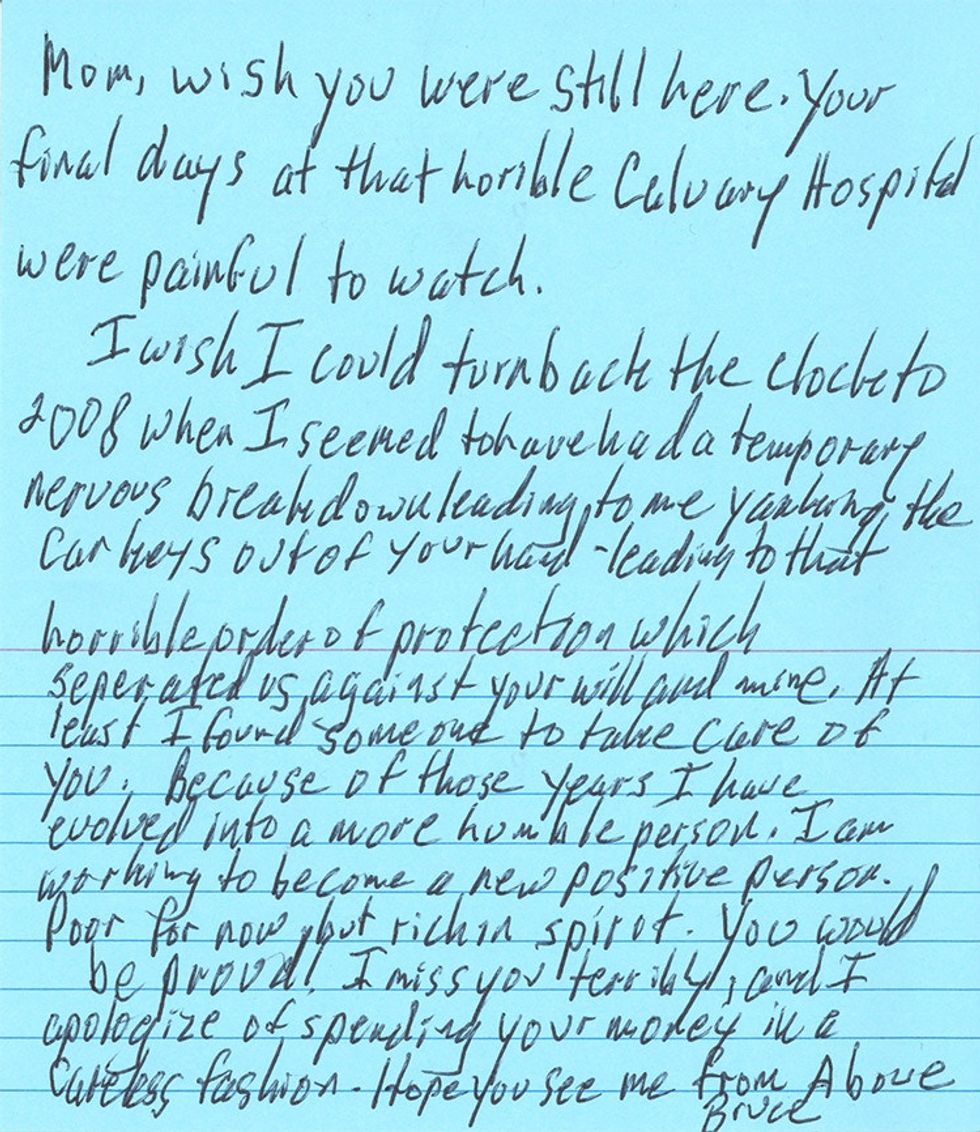 Mom, wish you were still here. Your
final days at that horible Calvary Hospital
were painful to watch.
I wish I could turn back the clock to
2008 when I seemed to have had a temporary
nervous breakdown leading to me yanking the
car keys out of your hand - leading to that
horrible order of protection which
seperated us, against your will and mine. At
least I found someone to take care of
you. Because of those years I have
evolved into a more humble person. I am
working to become a new positive person.
Poor for now, but rich in spirit. You would
be proud! I miss you terribly, and I
apologize of spending your money in a
careless fashion. Hope you see me from Above
Bruce